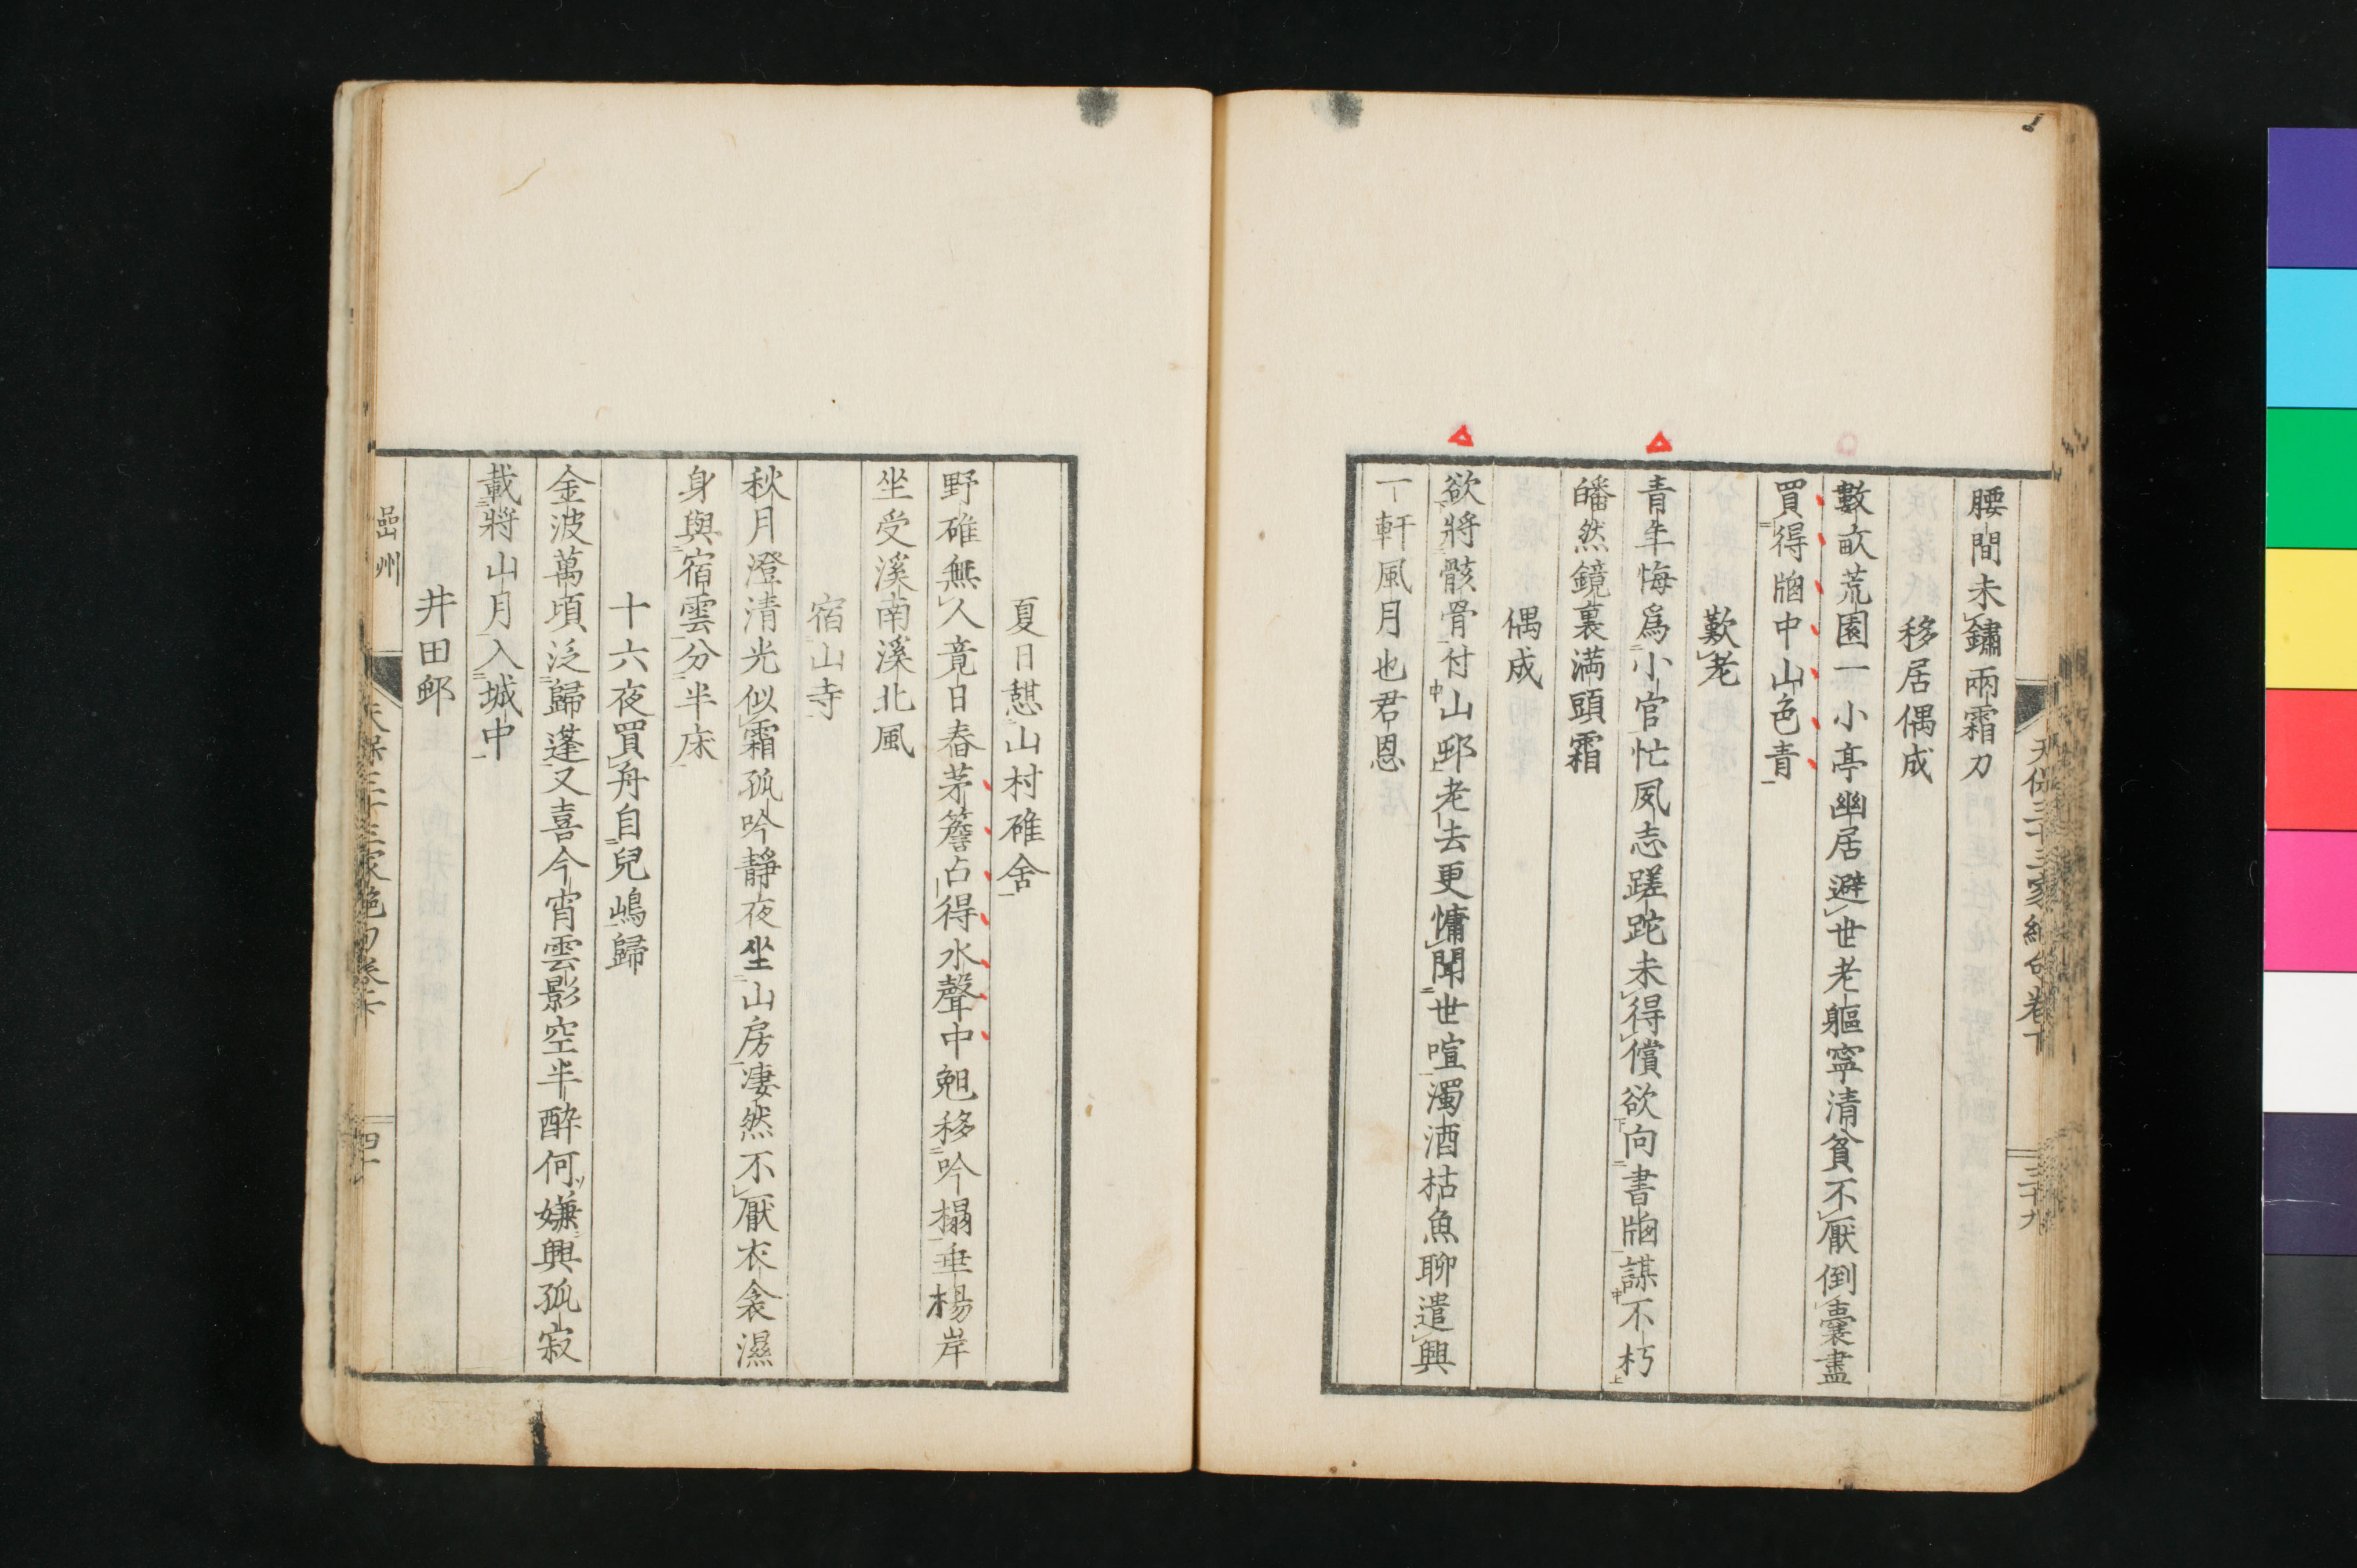 腰間未鏽兩霜刀
移居偶成
數畝荒園一小亭幽居避世老軀寧清貧不厭倒囊盡
買得牕中山色青
歎老
青年悔爲小官忙夙志蹉跎未得償欲向書牕謀不朽
皤然鏡裏満頭霜
偶成
欲將骸骨付山邨老去更慵聞世喧濁酒枯魚聊遣興
一軒風月也君恩
天保三十三家絶句卷十
三十九
夏日憩山村碓舍
野碓無人竟日舂茅簷占得水聲中匏移吟榻垂楊岸
坐受溪南溪北風
宿山寺
秋月澄清光似霜孤吟靜夜坐山房凄然不厭衣衾濕
身與宿雲分半床
十六夜買舟自兒嶋歸
金波萬頃泛歸蓬又喜今宵雲影空半酔何嫌興孤寂
載將山月入城中
井田邨
嵒州
天保三十三家絶句卷十
四十